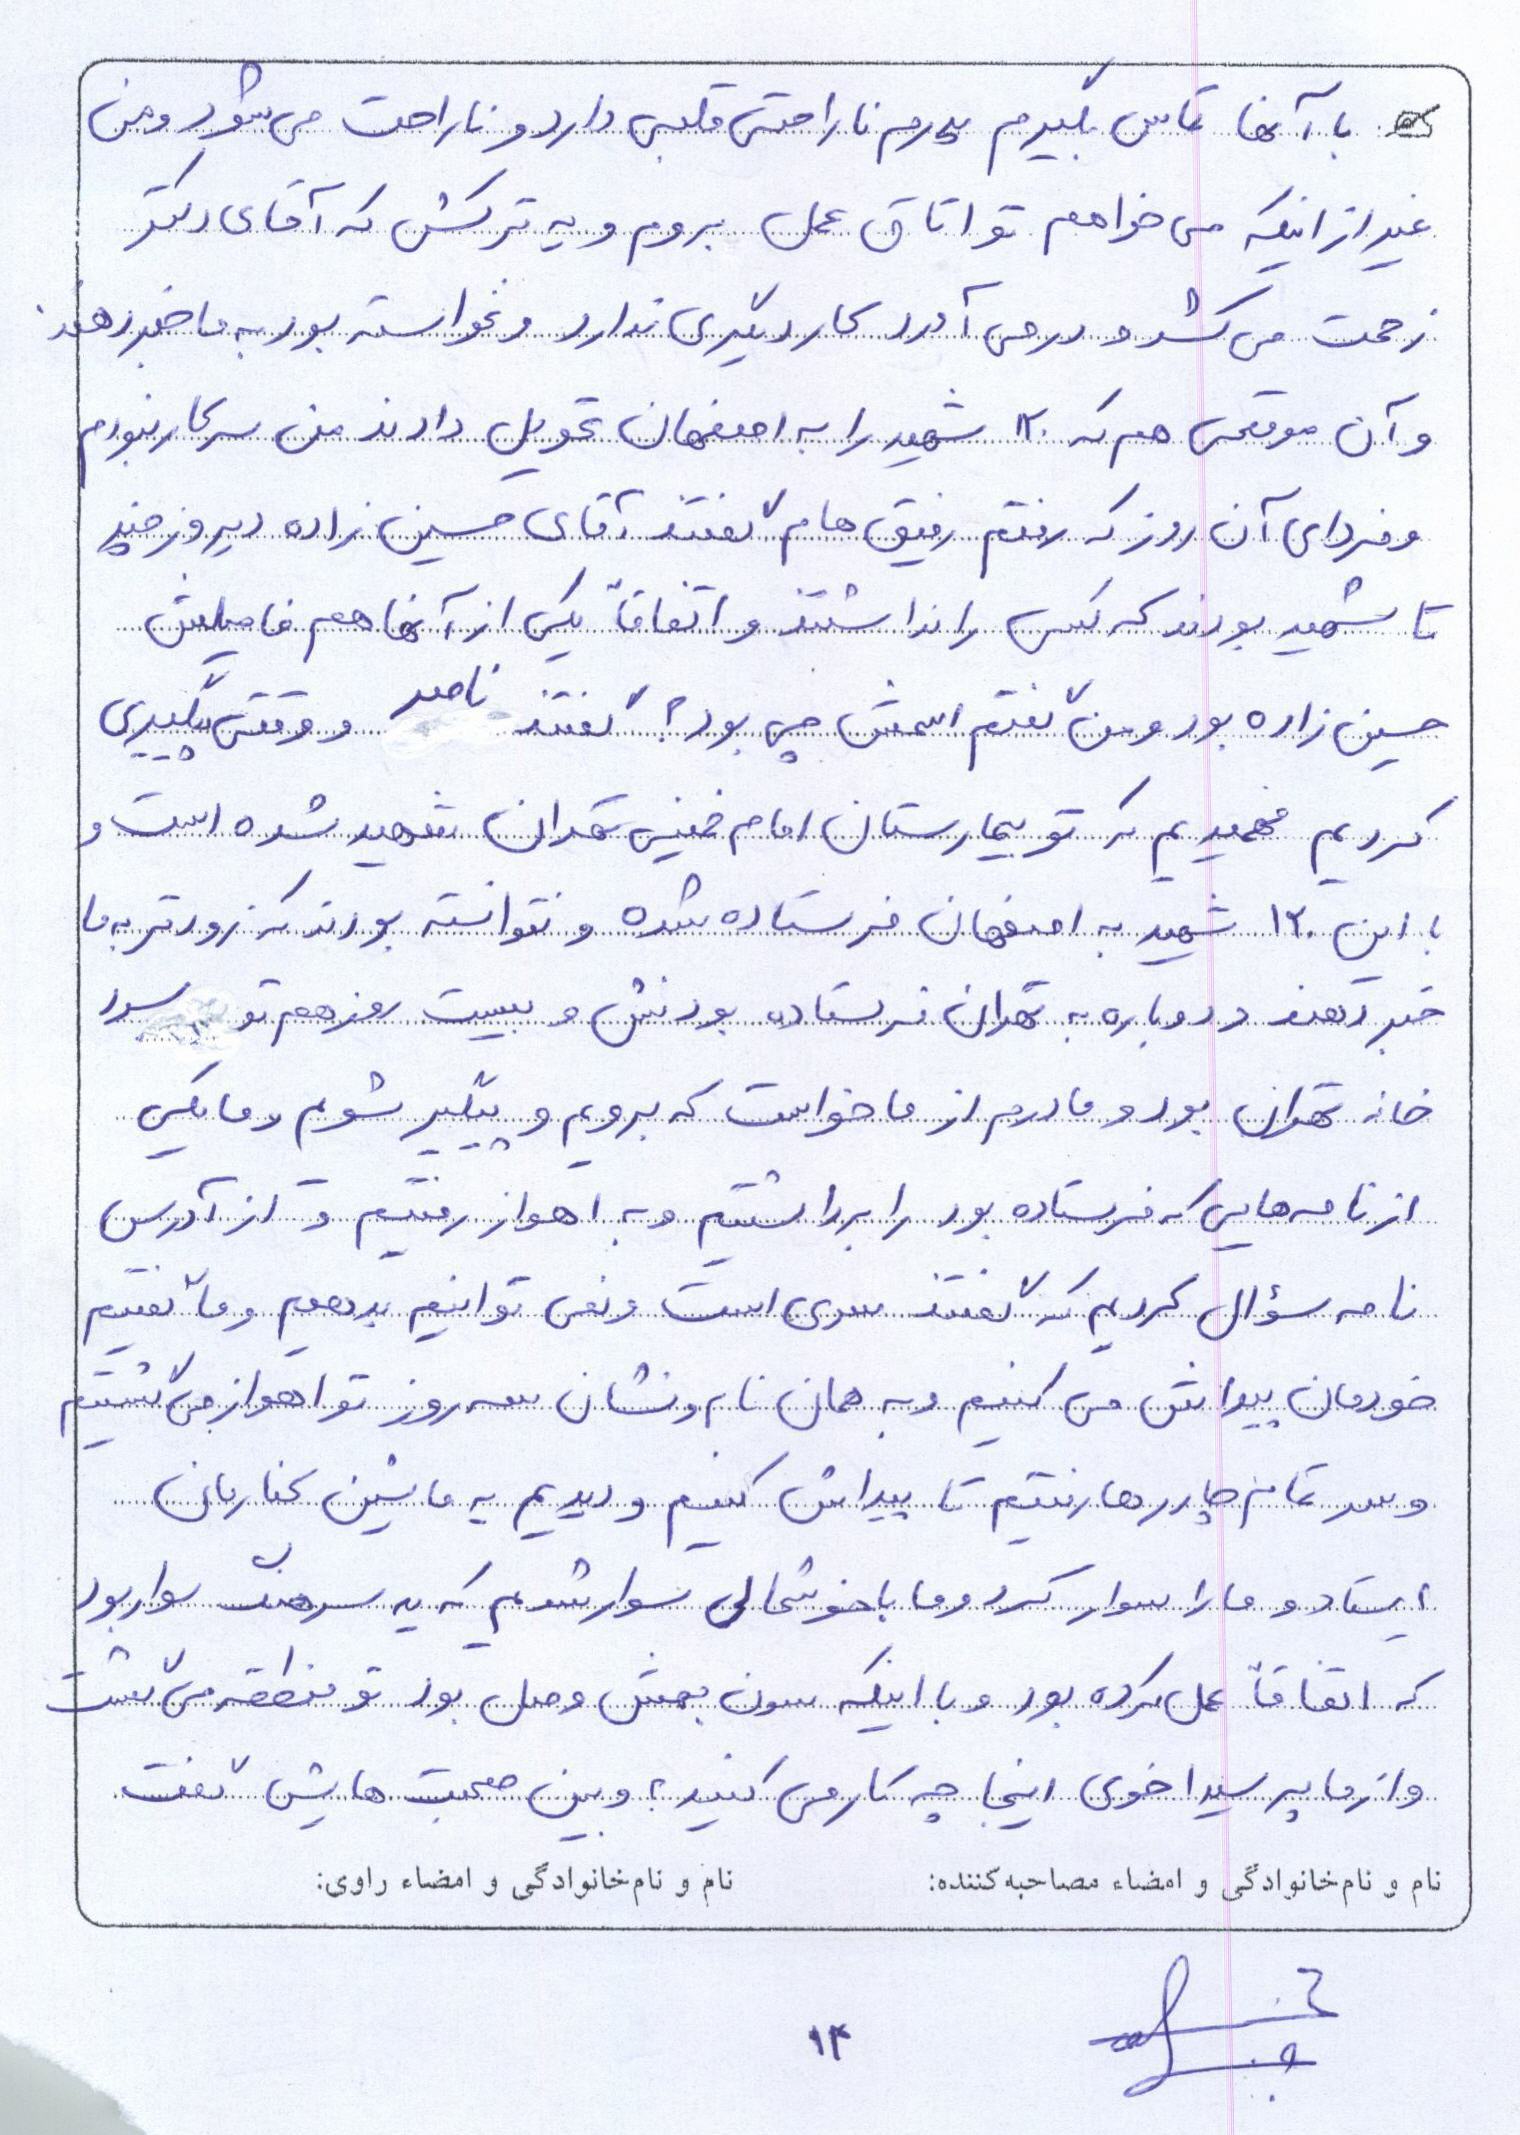 با آنها تماس بگیرم پدرم ناراحتی قلبی دارد و ناراحت می شود ومن
غیر از اینکه می خواهم تو اتاق عمل بروم و یه ترکش که آقای دکتر
زحمت می کشد و درمی آورد کار دیگری ندارد و نخواسته بود به ما خبر دهند.
و آن موقعی هم که ۱۲۰ شهید را به اصفهان تحویل دادند من سرکار نبودم
و فردای آن روز که رفتم رفیق هام گفتند آقای حسین زاده دیروز چند
تا شهید بودند که کسی را نداشتند و اتفاقاً یکی از آنها هم فامیلش
حسین زاده بود ومن گفتم اسمش چی بود؟ گفتند ناصر و وقتی پیگیری
کردیم فهمیدیم که تو بیمارستان امام خمینی تهران شهید شده است و
با این ۱۲۰ شهید به اصفهان فرستاده شده و نتوانسته بودند که زودتر به ما
خبر دهند و دوباره به تهران فرستاده بودنش و بیست روز هم تو سرد
خانه تهران بود و مادرم از ما خواست که برویم و پیگیر شویم و ما یکی
از نامه هایی که فرستاده بود را برداشتیم و به اهواز رفتیم و از آدرس
نامه سؤال کردیم که گفتند سری است و نمی توانیم بدهیم و ما گفتیم
خودمان پیدایش می کنیم و به همان نام ونشان سه روز تو اهواز می گشتیم
و سر تمام چادرها رفتیم تا پیدایش کنیم و دیدیم یه ماشین کنارمان
ایستاد و ما را سوار کرد و ما با خوشحالی سوار شدیم که یه سرهنگ سوار بود
که اتفاقاً عمل کرده بود و با اینکه سون بهش وصل بود تو منطقه می گشت
و از ما پرسید اخوی اینجا چه کار می کنید؟ و بین صحبت هایش گفت
نام و نام‌خانوادگی و امضاء مصاحبه‌کننده: نام و نام‌خانوادگی و امضاء راوی:
۱۴